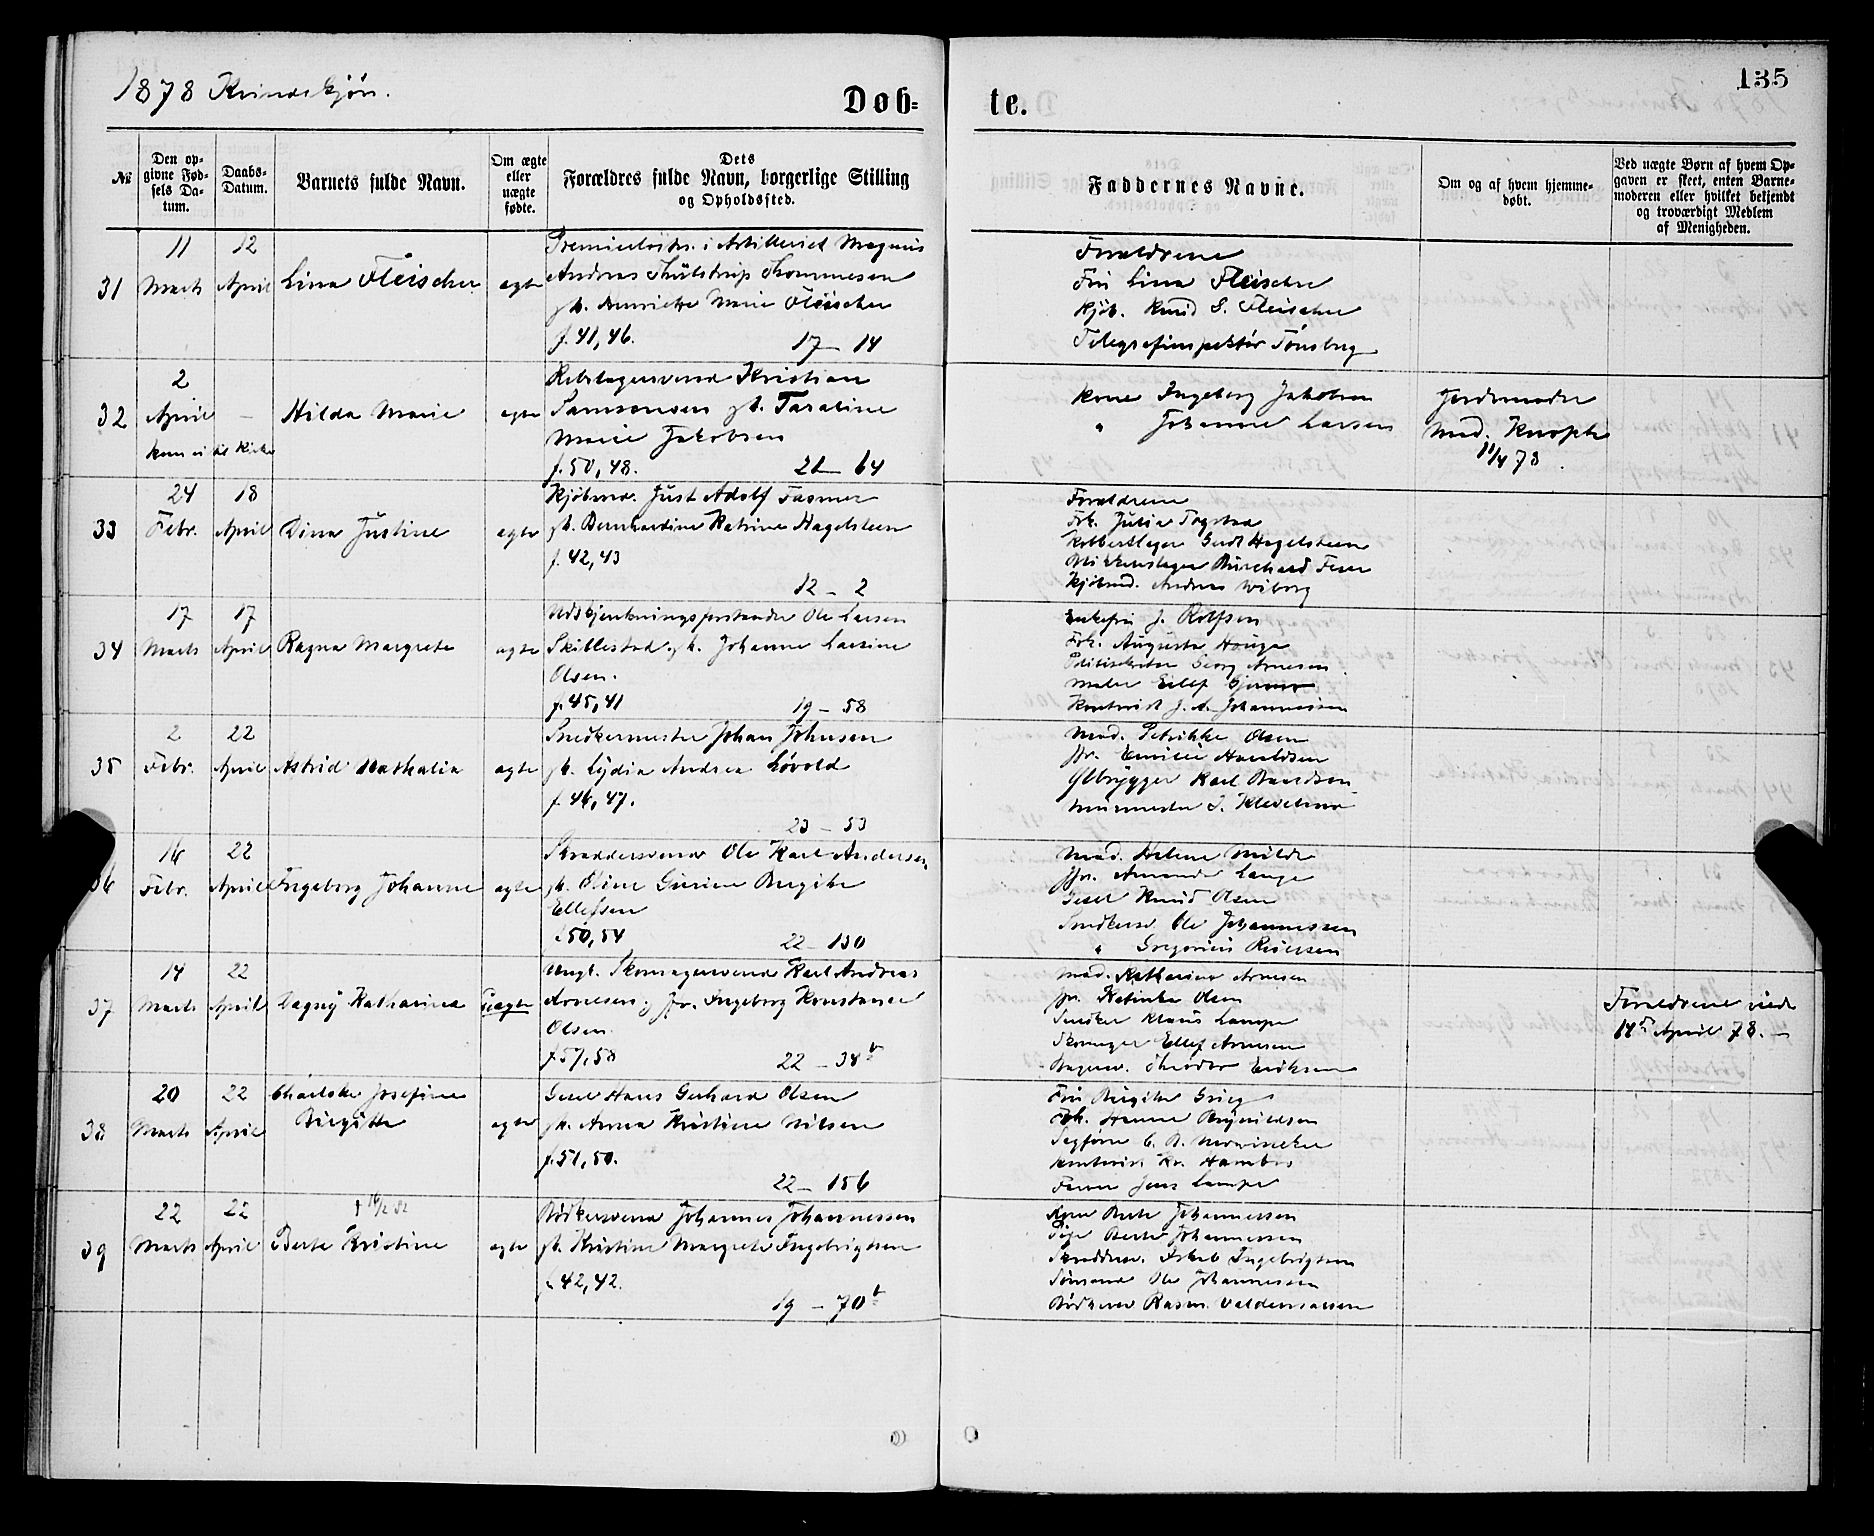 1878 Kvindekjøn.
135
Døb-
te.
№
Den op-
givne Fød-
sels Da-
tum.
Daabs-
Datum.
Barnets fulde Navn.
Om ægte
eller
uægte
fødte.
Dets
Forældres fulde Navn, borgerlige Stilling
og Opholdssted.
Faddernes Navne.
Om og af hvem hjemme-
døbt.
Ved uægte Børn af hvem Op-
gaven er skeet, enten Barne-
moderen eller hvilket bekjendt
og troværdigt Medlem
af Menigheden.
31
11
Marts
12
April
Lina Fleischer
ægte
i Artilleriet Magnus
Andreas Thulstrup Thommesen
gh. Henriette Marie Fleischer
f. 41, 46.
17 – 14
Forældrene
Fru Lina Fleischer
Kjøb. Knud S. Fleischer
Telegrafinspektør Tønsberg
32
2
April
–
kom ei til Kirke
Hilda Marie
ægte
Rebslagersvend Kristian
Samsonsen gh. Taraline
Marie Jakobsen
f. 50, 48.
21 – 64
Kone Ingeborg Jakobsen
" Johanne Larsen
Jordemoder
Mad. Knoph
11/4 78.
33
24
Febr.
18
April
Dina Justine
ægte
Kjøbmd. Just Adolf Fasmer
gh. Bernhardine Katrine Hagelsteen
f. 42, 43
12 – 2
Forældrene
Frk. Julia Fogstad
Kobberslager Gerdt Hagelsteen
Blikkenslager Burchard
Kjøbmd. Andreas Wiborg
34
17
Marts
17
April
Ragna Margrete
ægte
Udskjenkningsforstander Ole Larsen
Skillestad gh. Johanne Larsine
Olsen.
f. 45, 41
19 – 58
Enkefru J. Rolfsen
Frk. Augusta Houge
Georg Arnesen
Maler Eilef
Kontorist J. A. Johannessen
35
2
Febr.
22
April
Astrid Nathalia
ægte
Snedkermester Johan Johnsen
gh. Lydia Andrea Løvold
f. 46, 47.
23 – 53
Mad. Petrikke Olsen
Jfr. Emilie Haraldsen
Ølbrygger Karl Baardsen
Murmester
36
16
Febr.
22
April
Ingeborg Johanne
ægte
Skræddersvend Ole Karl Andersen
gh. Oline Gurine Birgithe
Ellefsen
f. 50, 54
22 – 130
Mad. Helene Milde
Jfr. Amanda Lange
Gesel Knud Olsen
Snedkersv. Ole Johannessen
" Gregorius
37
14
Marts
22
April
Dagny Katharina
Uægte
Ungk. Skomagersvend Karl Andreas
Arnesen, Jfr. Ingeborg Konstanse
Olsen.
f. 57, 58
22 – 38b
Mad. Katharina Arnesen
Jfr. Katinka Olsen
Snedker Klaus Lampe
Skomager Ellef Arnesen
Theodor Eriksen
Forældrene viede
14de April 78. –
38
20
Marts
22
April
Charlotte Josefine
Birgitte
ægte
Gesel Hans Gerhard Olsen
gh. Anna Kristine Nilsen
f. 51, 50.
22 – 156
Fru Birgithe Grieg
Frk. Hanna Brynildsen
Sagfører C. B.
Kontorist Kr. Hambro
Farver Jens Lampe
39
22
Marts
22
April
Berte Kristine
ægte
Bødkersvend Johannes Johannessen
gh. Kristine Margrete Ingebrigtsen
f. 42, 42.
19 – 70b
Kone Berte Johannessen
Pige Berte Johannessen
Skræddersv. Jakob Ingebrigtsen
Sømand Ole Johannessen
Bødkersv. Rasm. Valdemarsen